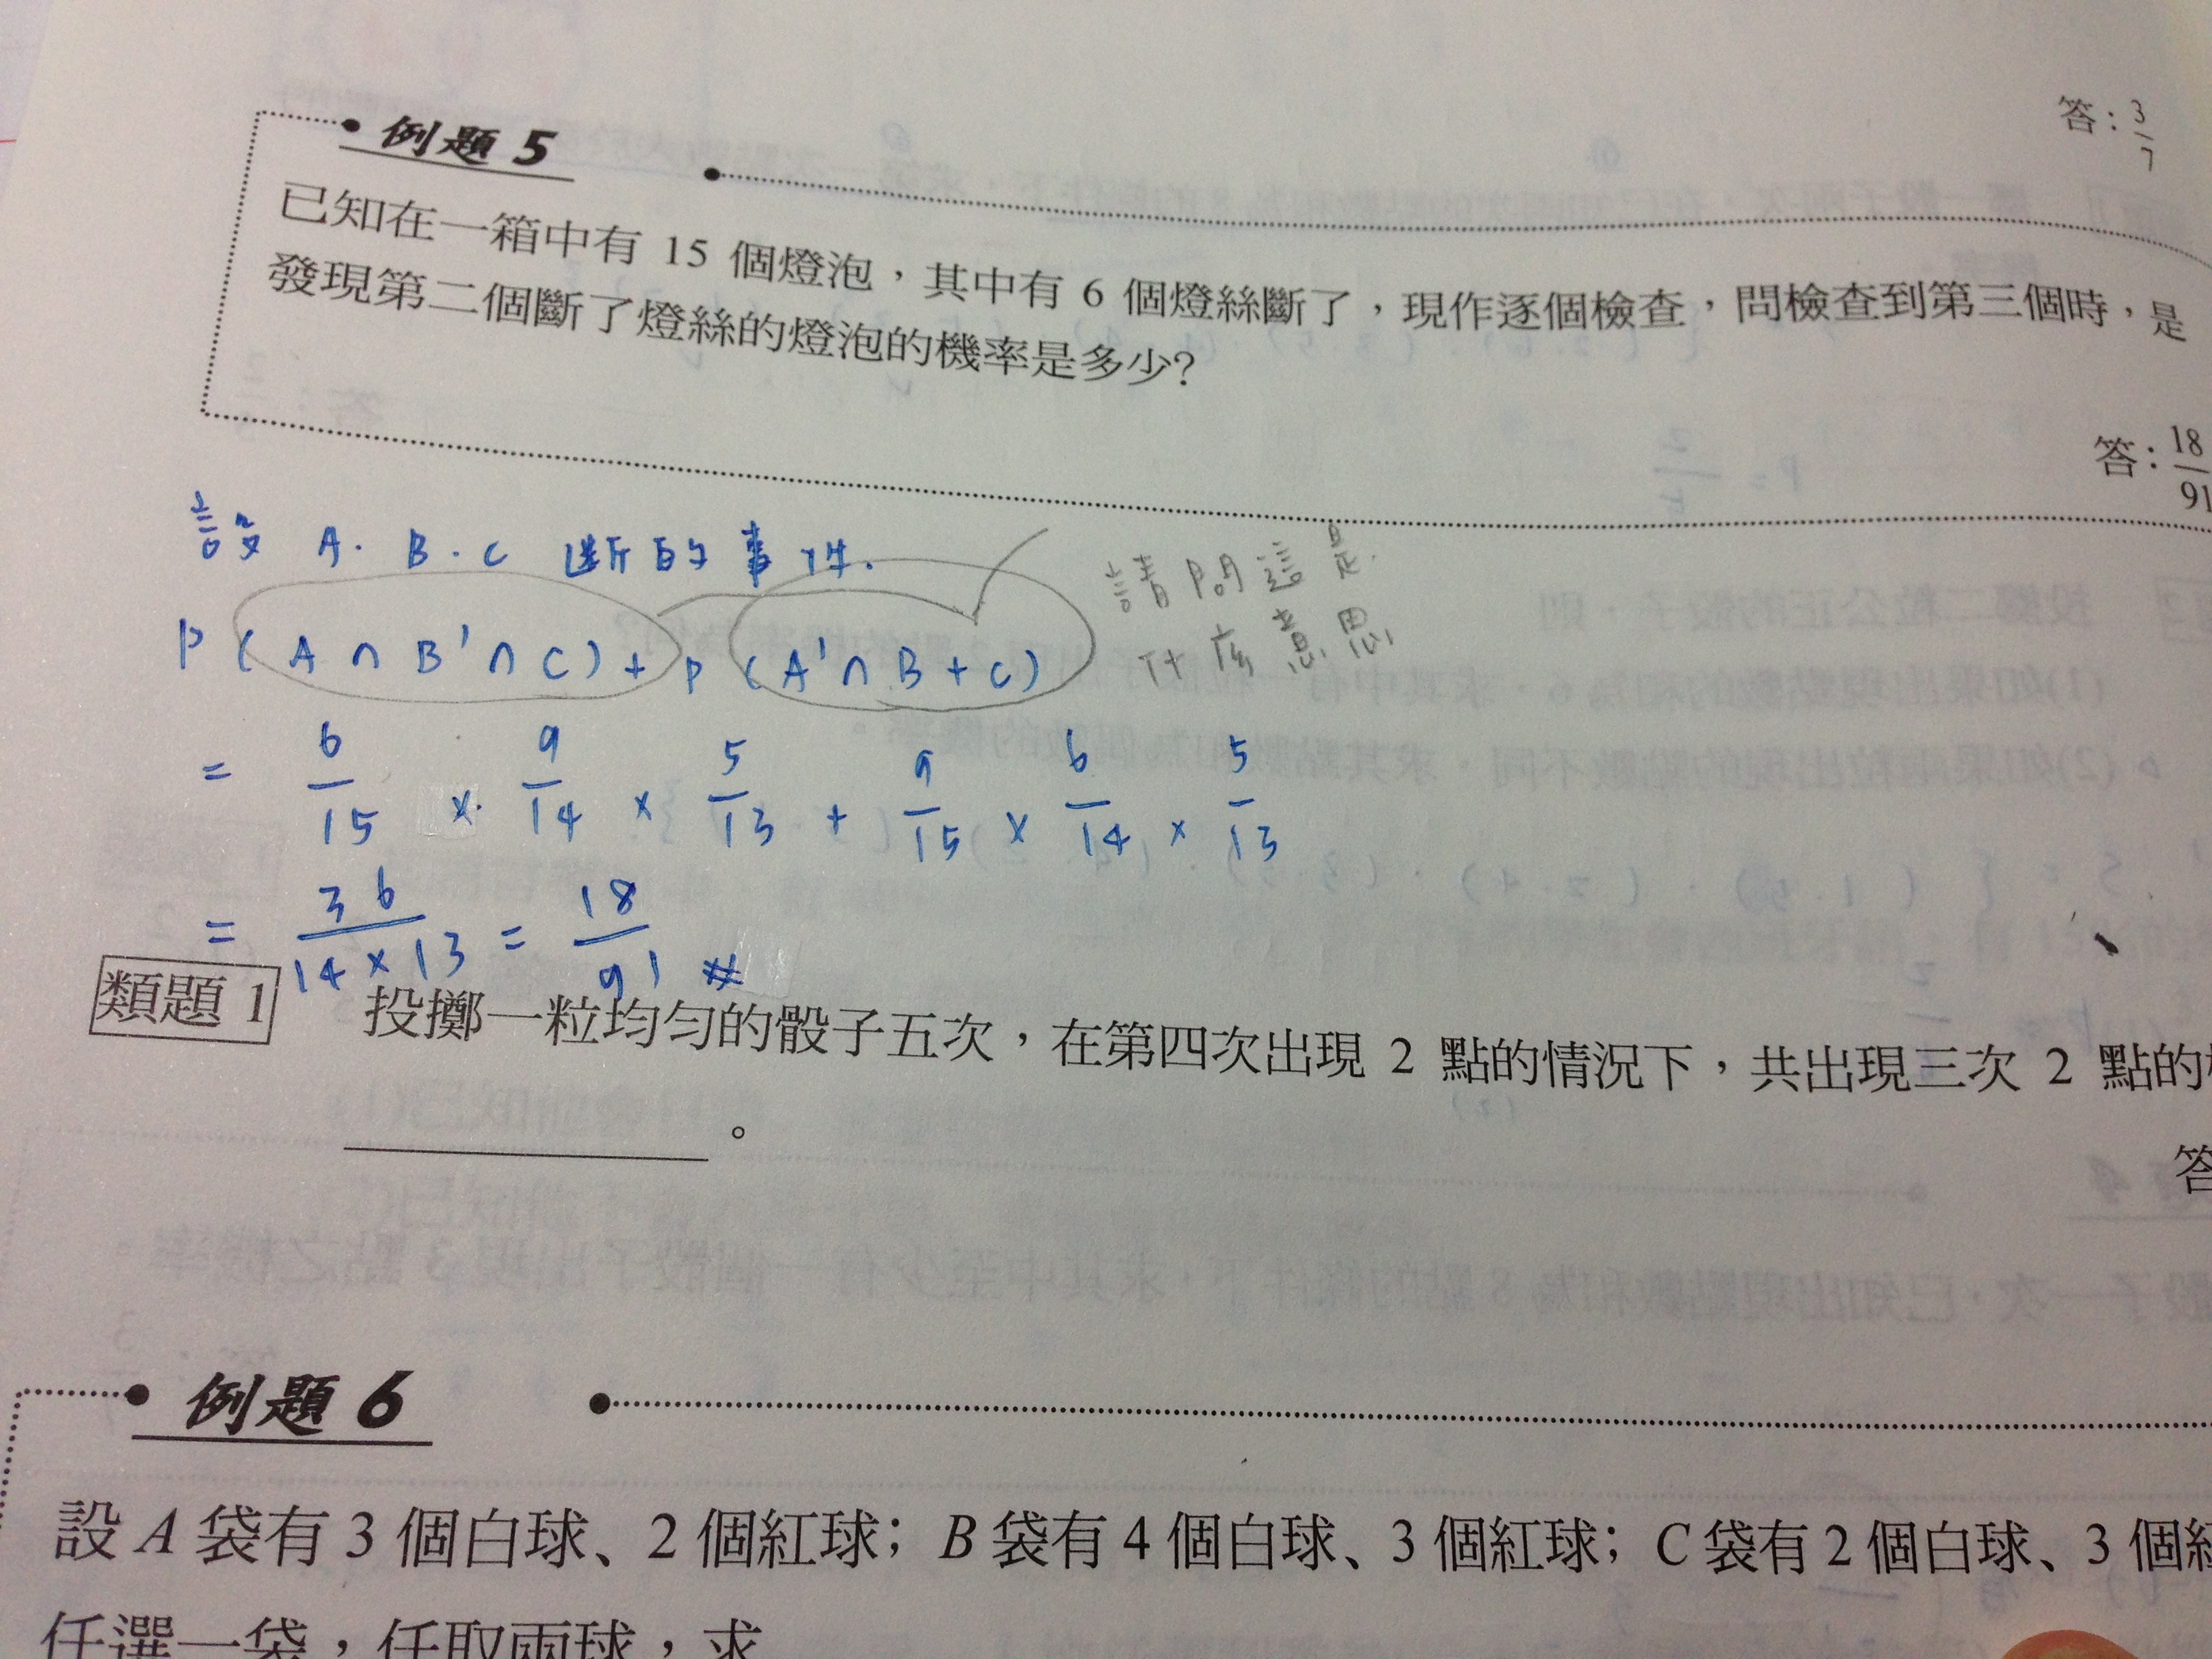 答：3/7
例題 5
已知在一箱中有 15 個燈泡，其中有 6 個燈絲斷了，現作逐個檢查，問檢查到第三個時，是
發現第二個斷了燈絲的燈泡的機率是多少？
答：18/91
設 A．B．C 斷的事件．
請問這是
什麼意思
P（A∩B'∩C）+P（A'∩B+C）
= 6/15 × 9/14 × 5/13 + 9/15 × 6/14 × 5/13
= 36/14×13 = 18/91 #
類題 1 投擲一粒均勻的骰子五次，在第四次出現 2 點的情況下，共出現三次 2 點的
。
答
例題 6
設 A 袋有 3 個白球、2 個紅球；B 袋有 4 個白球、3 個紅球；C 袋有 2 個白球、3 個紅
任選一袋，任取兩球，求